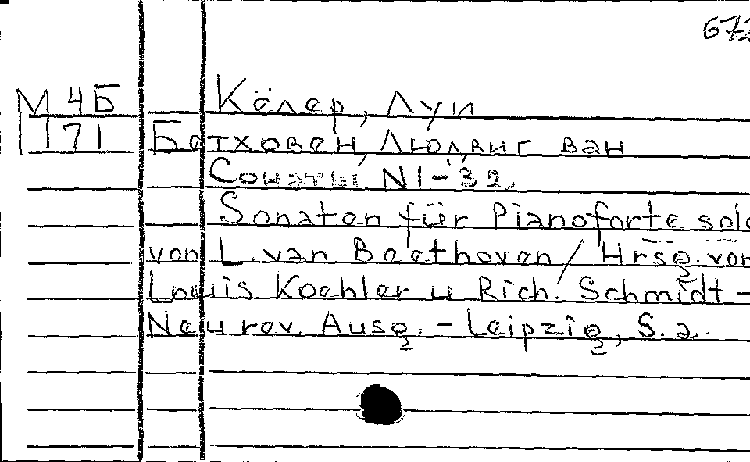 672
М 4Б Кёлер, Луи
171 Бетховен, Людвиг ван
Сонаты N1-32.
Sonaten für Pianoforte solo
von L. van Beethoven / Hrsg. von
Louis Koehler u Rich. Schmidt -
Neu rev. Ausg. - Leipzig, S. a.